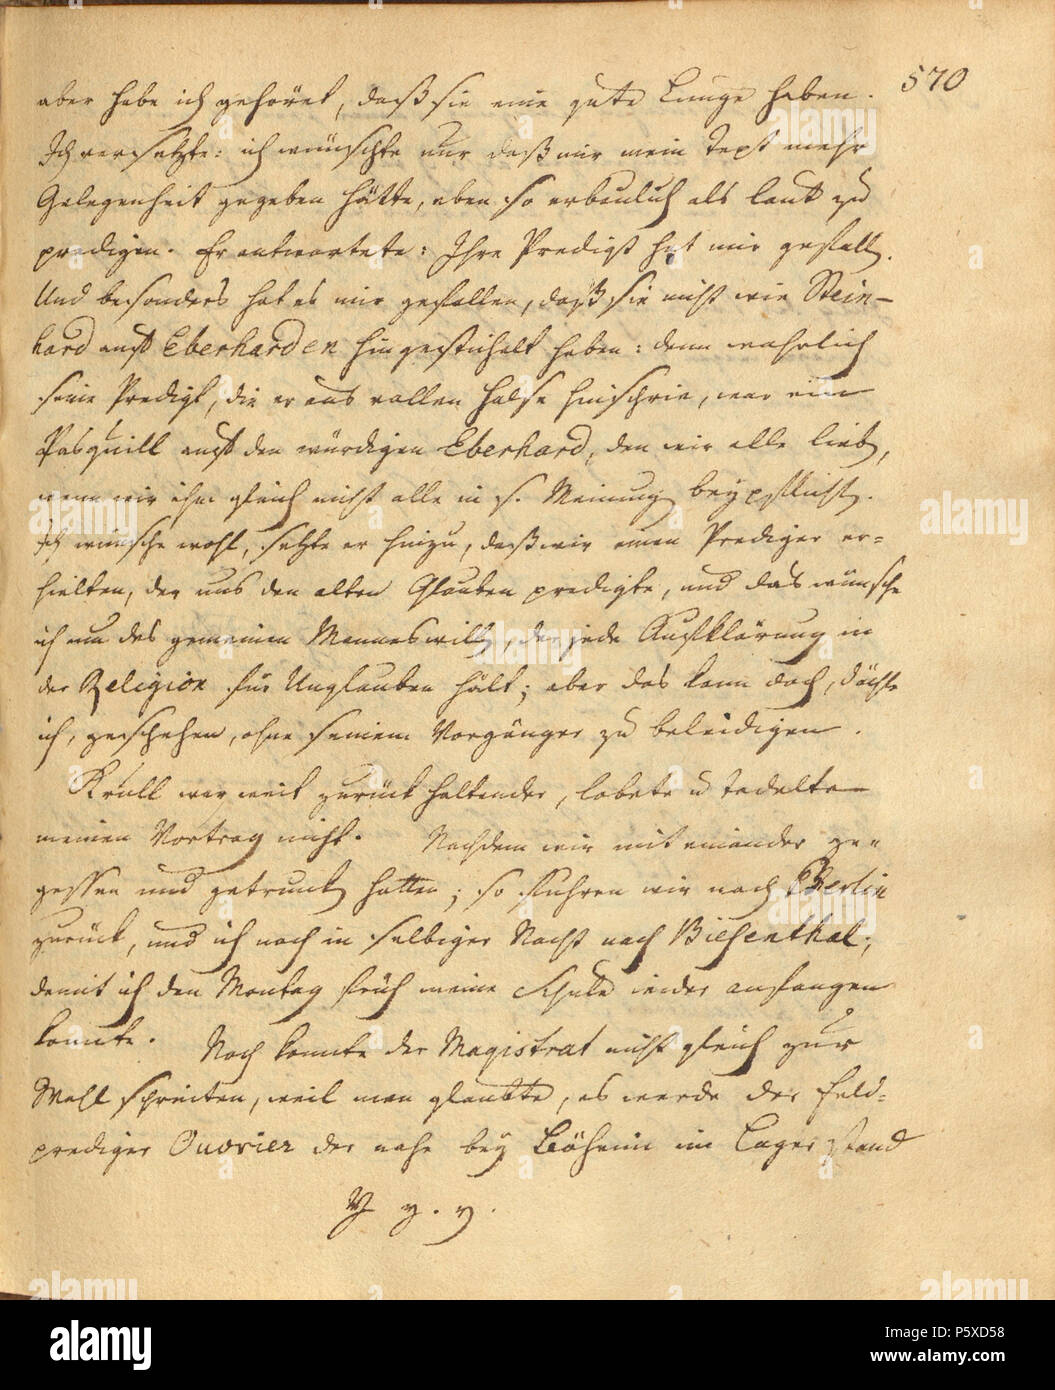 570
aber habe ich gehöret, daß sie eine gute Lunge haben.
Ich versetzte: ich wünschte nur daß mir mein Text mehr
Gelegenheit gegeben hätte, eben so erbaulich als laut zu
predigen. Er antwortete: Ihre Predigt hat mir gefall.
Und besonders hat es mir gefallen, daß sie nicht wie Stein-
hard auf Eberharden hingestichelt haben: denn wahrlich
seine Predigt, die er aus vollen Halse hinschrie, war ein
Pasquill auf den würdigen Eberhard, den wir alle lieb,
wenn wir ihm gleich nicht alle in s. Meinung beypflicht.
Ich wünsche wohl, setzte er hinzu, daß wir einen Prediger er=
hielten, der uns den alten Glauben predigte, und das wünsche
ich um des gemeinen Mannes will, der jede Aufklärung in
der Religion für Unglauben hält; aber das kann doch, dächte
ich, geschehen, ohne seinem Vorgänger zu beleidigen.
Krull war weit zurück haltender, lobete u tadelte
meinen Vortrag nicht. Nachdem wir mit einander ge=
gessen und getrunk hatten; so fuhren wir nach Berlin
zurück, und ich noch in selbiger Nacht nach Biesenthal,
damit ich den Montag früh meine Schule wieder anfangen
konnte. Noch konnte der Magistrat nicht gleich zur
Wahl schreiten, weil man glaubte, es werde der Feld=
prediger Ouvrier der nahe bey Böhmen im Lager stand
Y y y.
alamy
Image ID: P5XD58
www.alamy.com